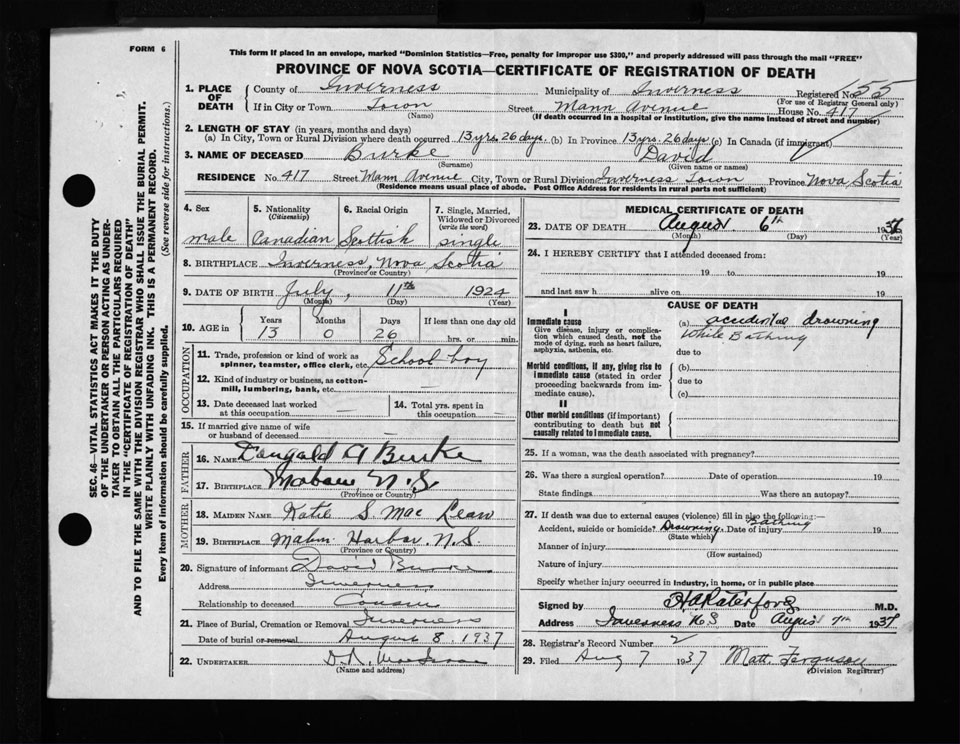 FORM 6
This form if placed in an envelope, marked "Dominion Statistics—Free, penalty for improper use $300," and properly addressed will pass through the mail "FREE"
PROVINCE OF NOVA SCOTIA—CERTIFICATE OF REGISTRATION OF DEATH
SEC. 46—VITAL STATISTICS ACT MAKES IT THE DUTY
OF THE UNDERTAKER OR PERSON ACTING AS UNDER-
TAKER TO OBTAIN ALL THE PARTICULARS REQUIRED
IN THE "CERTIFICATE OF REGISTRATION OF DEATH"
AND TO FILE THE SAME WITH THE DIVISION REGISTRAR WHO SHALL ISSUE THE BURIAL PERMIT.
WRITE PLAINLY WITH UNFADING INK. THIS IS A PERMANENT RECORD.
Every item of information should be carefully supplied. (See reverse side for instructions.)
1. PLACE OF DEATH County of Inverness Municipality of Inverness Registered No. 55
(For use of Registrar General only)
If in City or Town Town Street Mann Avenue House No. 417
(Name) (If death occurred in a hospital or institution, give the name instead of street and number)
2. LENGTH OF STAY (in years, months and days)
(a) In City, Town or Rural Division where death occurred 13 yrs. 26 days. (b) In Province 13 yrs. 26 days (c) In Canada (if immigrant)
3. NAME OF DECEASED Burke David
(Surname) (Given name or names)
RESIDENCE No. 417 Street Mann Avenue City, Town or Rural Division Inverness Town Province Nova Scotia
(Residence means usual place of abode. Post Office Address for residents in rural parts not sufficient)
4. Sex 5. Nationality (Citizenship) 6. Racial Origin 7. Single, Married, Widowed or Divorced (write the word)
male Canadian Scottish single
8. BIRTHPLACE Inverness, Nova Scotia
(Province or Country)
9. DATE OF BIRTH July, 11th 1924
(Month) (Day) (Year)
10. AGE in Years Months Days If less than one day old
13 0 26 hrs. or min.
OCCUPATION
11. Trade, profession or kind of work as spinner, teamster, office clerk, etc. School boy
12. Kind of industry or business, as cotton-mill, lumbering, bank, etc. —
13. Date deceased last worked at this occupation — 14. Total yrs. spent in this occupation —
15. If married give name of wife or husband of deceased —
FATHER
16. NAME Dougald A Burke
17. BIRTHPLACE Mabou N.S
(Province or Country)
MOTHER
18. MAIDEN NAME Katie S. Mac Lean
19. BIRTHPLACE Harbor. N.S.
(Province or Country)
20. Signature of informant David Burke
Address Inverness
Relationship to deceased Cousin
21. Place of Burial, Cremation or Removal Inverness
Date of burial or removal August 8. 1937
22. UNDERTAKER
(Name and address)
MEDICAL CERTIFICATE OF DEATH
23. DATE OF DEATH August 6th 1937
(Month) (Day) (Year)
24. I HEREBY CERTIFY that I attended deceased from:
19 to 19
and last saw h alive on 19
CAUSE OF DEATH
I
Immediate cause (a) accidental drowning
Give disease, injury or complication which caused death, not the mode of dying, such as heart failure, asphyxia, asthenia, etc. While Bathing
due to
Morbid conditions, if any, giving rise to immediate cause (stated in order proceeding backwards from immediate cause). (b)
due to
(c)
II
Other morbid conditions (if important) contributing to death but not causally related to immediate cause.
25. If a woman, was the death associated with pregnancy?
26. Was there a surgical operation? Date of operation 19
State findings Was there an autopsy?
27. If death was due to external causes (violence) fill in also the following:—
Accident, suicide or homicide? Drowning Bathing Date of injury 19
(State which)
Manner of injury
(How sustained)
Nature of injury
Specify whether injury occurred in industry, in home, or in public place
Signed by M.D.
Address Inverness N.S Date August 7th 1937
28. Registrar's Record Number 2
29. Filed Aug 7 1937 Matt. Ferguson
(Division Registrar)